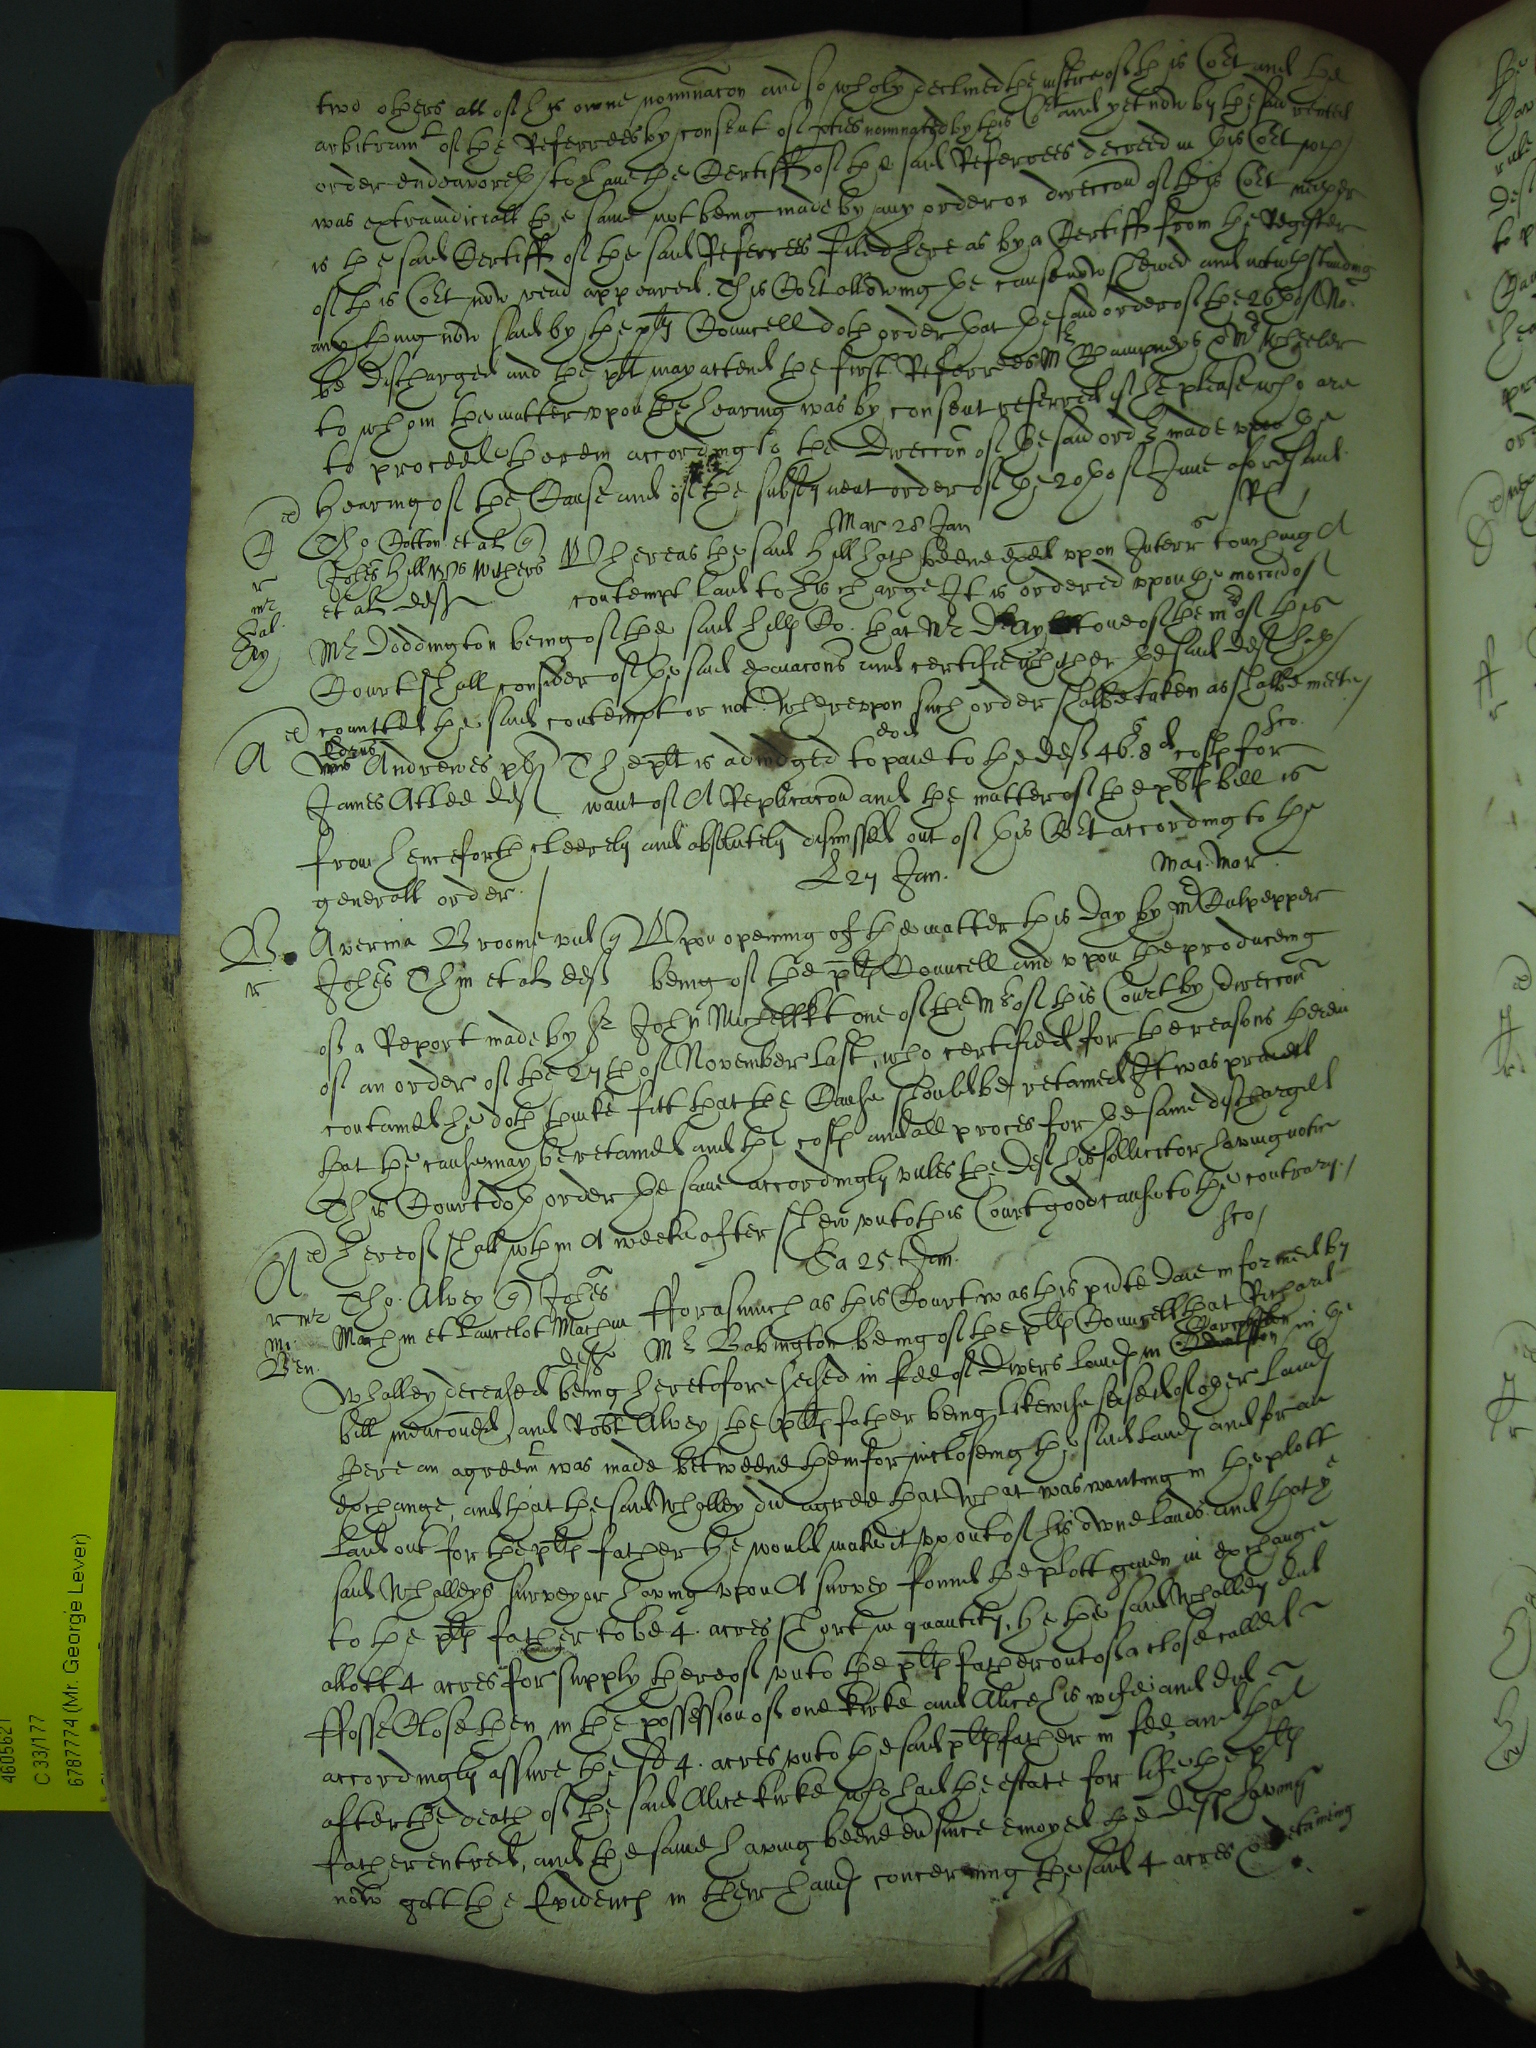 two others all of his owne nominacon and so wholy declined the justice of this Cort and the
arbitramt of the Referrees by consent of pties nominated by this Cort and yet now by the said recited
order endeavoreth to have the Certiff of the said Referrees decreed in this Cort wch
was extraiudiciall the same not being made by any order or direccon of this Cort neither
is the said Certiff of the said Referrees filed here as by a Certiff from the Register
of this Cort now read appeared. This Cort allowing the cause now shewed and notwthstanding
any thing now said by the plts Councell doth order that the said order of the 26th of No:
be discharged and the plt may attend the first Referrees Mr Champneys & Mr Wheeler
to whom the matter upon the hearing was by consent referred if he please who are
to proceede therein according to the direccon of the said ordr made upon the
hearing of the Cause and of the subsequent order of the 20th of June aforesaid.
Mar 28 Jan
Tho Cotton et al q Whereas the said Hill hath beene exed upon Interr touching A
Johes Hill Withers
et al deff contempt laid to his charge It is ordered upon the mocon of
Mr Doddington being of the said Hills Co. that Mr one of the mrs of this
Court shall consider of the said exaiacons and certifie whither the said deft hath
comitted the said contempt or not. Whereupon such order shalbe taken as shalbe meete
Andrewes plt The plt is adiudged to paie to the deft 46s. 8d costs for
James Atlee deft want of A Replicacon and the matter of the plts bill is
from henceforth cleerely and absolutely dismissed out of this Cort according to the
generall order.
27 Jan. Mar. Mor.
Averina Broome vid q Upon opening of the matter this day by Mr Culpepper
Johes Thin et al deft being of the plts Councell and upon the produceing
of a Report made by Sr John Michell kt one of the Mrs of this Court by direccon
of an order of the 27th of November last, who certified for the reasons therein
contained he doth thinke fitt that the Cause should be retained It was praied
that the cause may be retained and the costs and all proces for the same discharged
This Court doth order the same accordingly unles the deft his sollicitor having notice
hereof shall wthin A weeke after shew unto this Court good cause to the contrary.
Sa 25 Jan.
Tho. Alvey q Johes
Machin et Lancelot Machin Fforasmuch as this Court was this pnte daie informed by
deft Mr Babington being of the plts Councell that Richard
Whalley deceased being heretofore seised in fee of divers lands in in the
bill menconed, and Robt Alvey the plts father being likewise seised of other lands
there an agreemt was made betweene them for inclosing the said lands and for an
exchange, and that the said Whalley did agree that what was wanting in the plott
laid out for the plts father he would make it up out of his owne lands and that ye
said Whalleys surveyor having upon A survey found the plott given in exchange
to the plts father to be 4. acres short in quantity, he the said Whalley did
allott 4 acres for supply thereof unto the plts father out of a close called
Ffosse Close then in the possession of one Kirke and Alice his wife and did
accordingly assure the sd 4. acres unto the said plts father in fee, and that
after the death of the said Alice Kirke who had the estate for life the plts
father entred, and the same having beene ever since enioyed the defts having
now gott the Evidences in their hands concerning the said 4 acres & detaining
4605621
C 33/177
6787774 (Mr. George Lever)